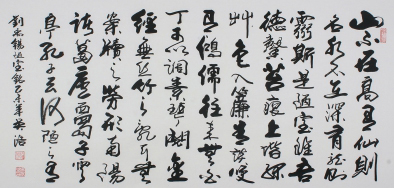 山不在高有仙則
名水不在深有龍則
靈斯是陋室惟吾
德馨苔痕上階綠
草色入簾青談笑
有鴻儒往來無白
丁可以調素琴閱金
經無絲竹之亂耳無
案牘之勞形南陽
諸葛廬西蜀子雲
亭孔子云何陋之有
劉禹錫陋室銘乙未年